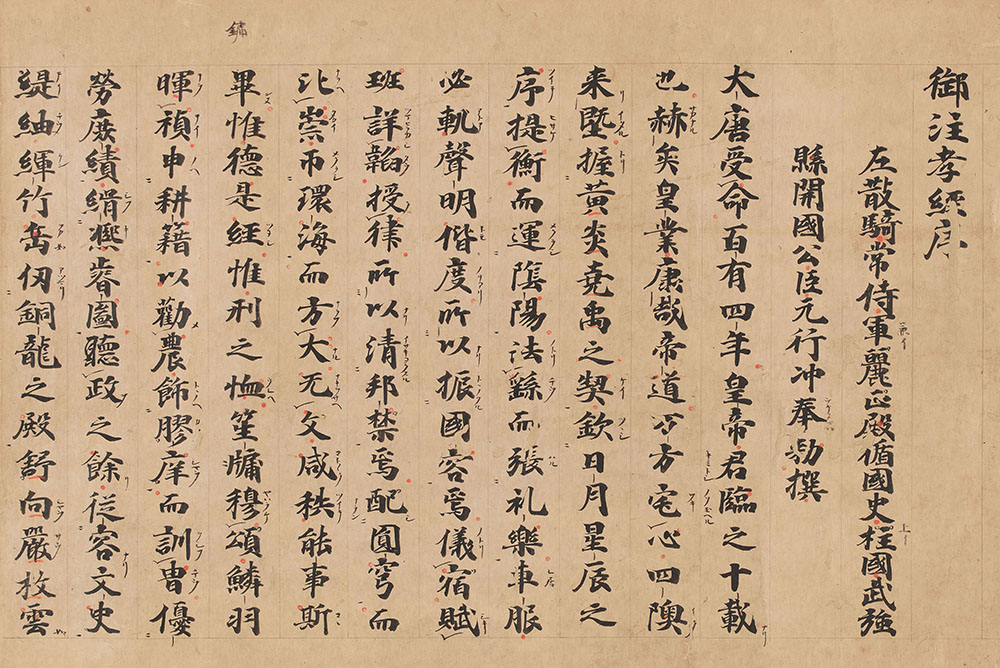 御注孝經序
左散騎常侍軍麗正殿脩國史柱國武強
縣開國公臣元行沖奉勅撰
大唐受命百有四年皇帝君臨之十載
也赫矣皇業康哉帝道万方宅心四隩
来曁握黃炎堯禹之契欽日月星辰之
序提衡而運陰陽法繇而張礼樂車服
必軌聲明偕度所以振國容焉儀宿賦
班詳韜授律所以清邦禁焉配圓穹而
比崇帀環海而方大无文咸秩能事斯
畢惟德是經惟刑之恤笙牗穆頌鱗羽
暉禎申耕籍以勸農飾膠庠而訓胄優
勞庶績緝熙睿圖聽政之餘從容文史
緹紬緷竹嵩仞銅龍之殿舒向嚴枚雲
鏽